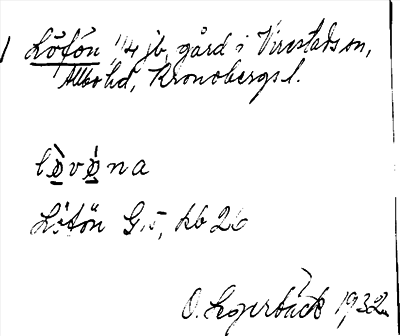 Löfön 1/4 jb, gård i Virestads sn,
Allbo hd, Kronobergs l.
lø̀vǿna
Löfön G.5, kb 26
O. Logerbäck 1932